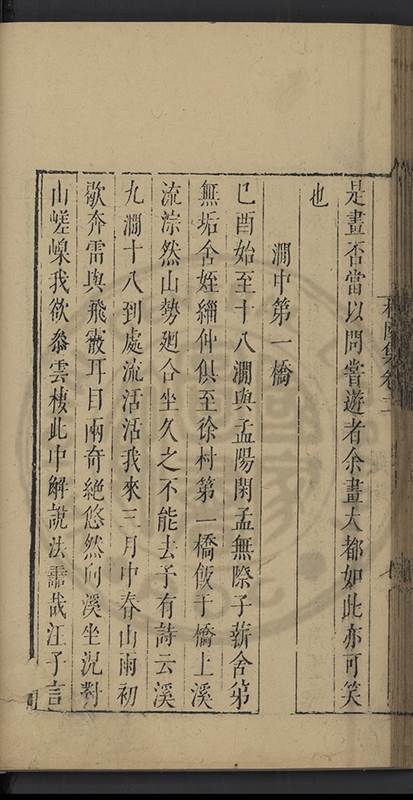 是畫否當以問嘗遊者余畫大都如此亦可笑
也
澗中第一橋
己酉始至十八澗與孟陽閑孟無際子薪舍弟
無垢舍姪緇仲俱至徐村第一橋飯于橋上溪
流淙然山勢廻合坐久之不能去予有詩云溪
九澗十八到處流活活我來三月中春山雨初
歇奔雷與飛霰耳目兩奇絕悠然向溪坐況對
山嵯嵲我欲叅雲棲此中解說法善哉江子言